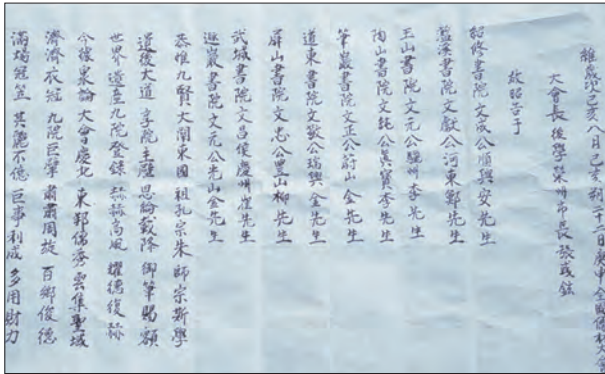 維歲次己亥八月己亥朔二十二日庚申全國儒林大會
大會長後學榮州市長張彧鉉
敢昭告于
紹修書院 文成公順興安先生
藍溪書院文獻公河東鄭先生
玉山書院文元公驪州李先生
陶山書院文純公眞寶李先生
筆巖書院文正公蔚山金先生
道東書院文敬公瑞興金先生
屛山書院文忠公豊山柳先生
武城書院文昌侯慶州崔先生
遯巖書院文元公光山金先生
恭惟九賢大闡東國祖孔宗朱師宗斯學
大道 享院主 綸載降 御筆賜額
世界遺產九院登錄 赫赫高風 耀德後赫
今 衆論大會慶北 東鄒儒 雲集聖域
濟濟衣冠 九院巨擘 肅肅周旋 百鄕俊德
滿場冠笠 其麗不億 巨事利成 多用財力